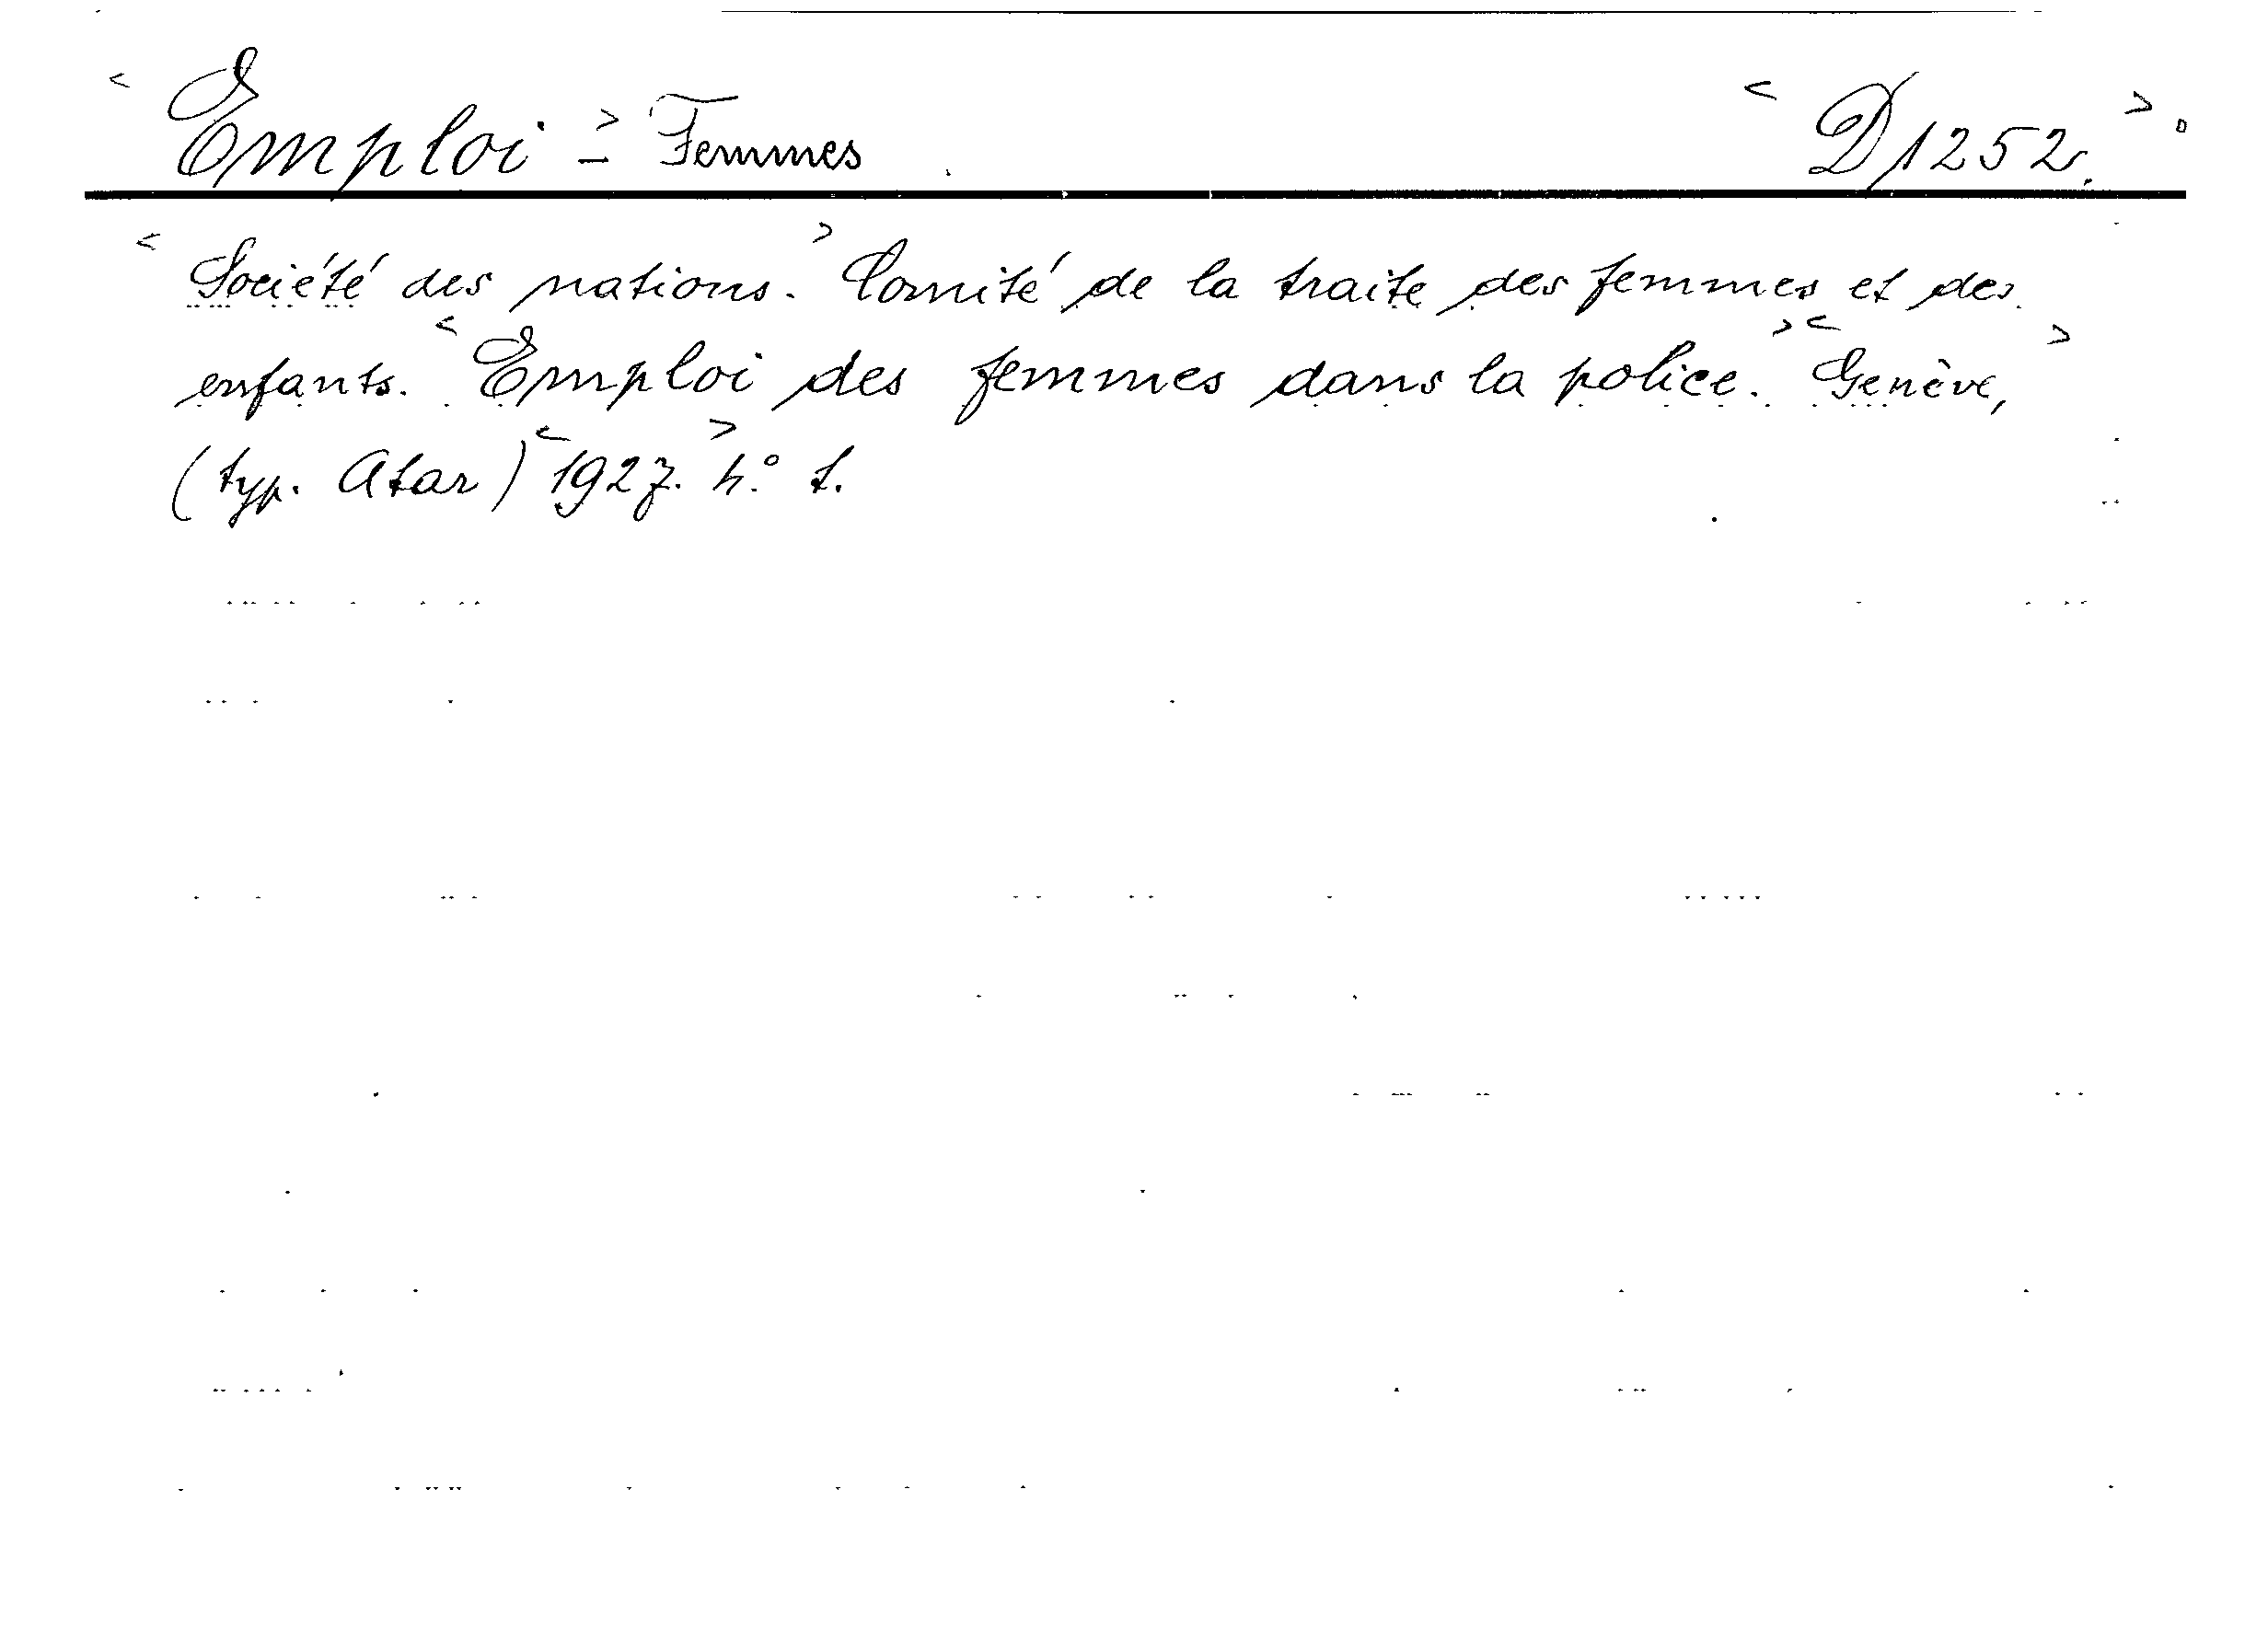 < Emploi > - Femmes < D 1252. >
< Société des nations. > Comité de la traite des femmes et des
enfants. < Emploi des femmes dans la police. > < Genève, >
(typ. Atar) < 1927. > 4°